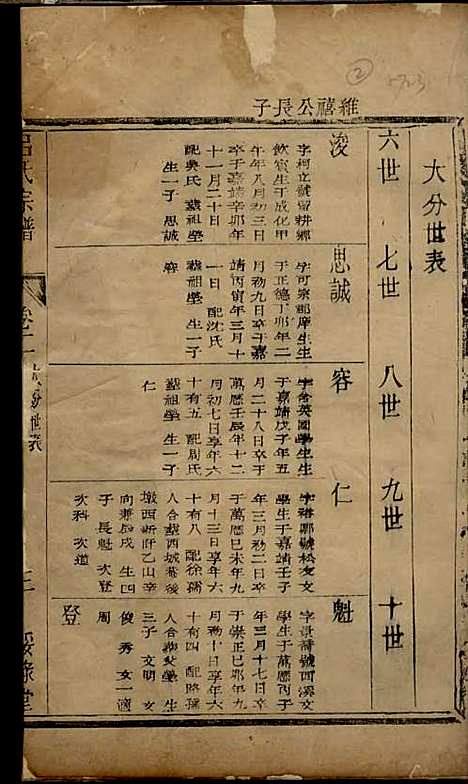 ② 5723
維禧公長子
大分世表
六世 七世 八世 九世 十世
浚
字柯立號留耕鄉
飲賓生于成化甲
午年八月初三日
卒于嘉靖辛卯年
十一月二十日
配吳氏 葬祖塋
生一子 思誠
思誠
字可宗郡庠生生
于正德丁卯年二
月初九日卒于嘉
靖丙寅年三月十
一日 配沈氏
葬祖塋 生一子
容
容
字含英國學生生
于嘉靖戊子年五
月二十八日卒于
萬曆壬辰年十二
月初七日享年六
十有五 配周氏
葬祖塋 生一子
仁
仁
號松友文
學生于嘉靖壬子
年三月初二日卒
于萬曆己未年九
月十三日享年六
十有八 配徐孺
人合葬西城菴後
墩西新阡乙山辛
向兼辰戌 生四
子 長魁 次登
次科 次道
魁
字 號西溪文
學生于萬曆丙子
年三月十七日卒
于崇正己卯年九
月初十日享年六
十有四 配路孺
人合葬父塋 生
三子 文明 文
俊 秀 女一適
周
登
呂氏宗譜 卷二 大分世表 二